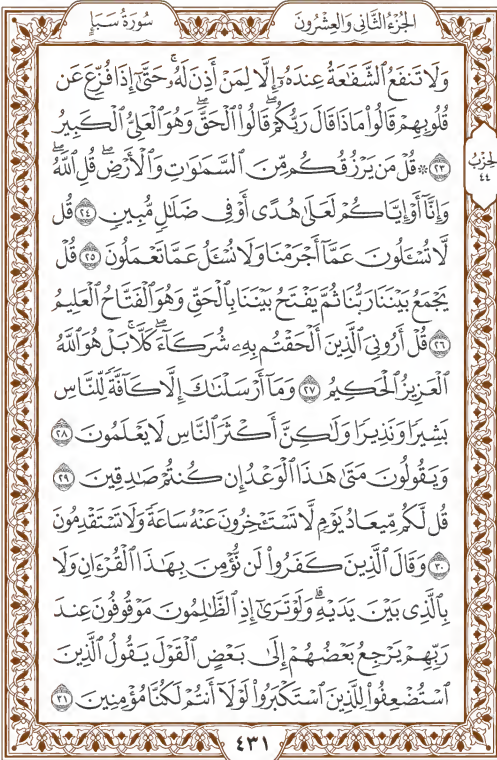 الجزء الثاني والعشرون
سورة سبإ
وَلَا تَنفَعُ ٱلشَّفَٰعَةُ عِندَهُۥٓ إِلَّا لِمَنْ أَذِنَ لَهُۥ ۚ حَتَّىٰٓ إِذَا فُزِّعَ عَن
قُلُوبِهِمْ قَالُوا۟ مَاذَا قَالَ رَبُّكُمْ ۖ قَالُوا۟ ٱلْحَقَّ ۖ وَهُوَ ٱلْعَلِىُّ ٱلْكَبِيرُ
٢٣ ۞ قُلْ مَن يَرْزُقُكُم مِّنَ ٱلسَّمَٰوَٰتِ وَٱلْأَرْضِ ۖ قُلِ ٱللَّهُ ۖ
وَإِنَّآ أَوْ إِيَّاكُمْ لَعَلَىٰ هُدًى أَوْ فِى ضَلَٰلٍ مُّبِينٍ ٢٤ قُل
لَّا تُسْـَٔلُونَ عَمَّآ أَجْرَمْنَا وَلَا نُسْـَٔلُ عَمَّا تَعْمَلُونَ ٢٥ قُلْ
يَجْمَعُ بَيْنَنَا رَبُّنَا ثُمَّ يَفْتَحُ بَيْنَنَا بِٱلْحَقِّ وَهُوَ ٱلْفَتَّاحُ ٱلْعَلِيمُ
٢٦ قُلْ أَرُونِىَ ٱلَّذِينَ أَلْحَقْتُم بِهِۦ شُرَكَآءَ ۖ كَلَّا ۚ بَلْ هُوَ ٱللَّهُ
ٱلْعَزِيزُ ٱلْحَكِيمُ ٢٧ وَمَآ أَرْسَلْنَٰكَ إِلَّا كَآفَّةً لِّلنَّاسِ
بَشِيرًا وَنَذِيرًا وَلَٰكِنَّ أَكْثَرَ ٱلنَّاسِ لَا يَعْلَمُونَ ٢٨
وَيَقُولُونَ مَتَىٰ هَٰذَا ٱلْوَعْدُ إِن كُنتُمْ صَٰدِقِينَ ٢٩
قُل لَّكُم مِّيعَادُ يَوْمٍ لَّا تَسْتَـْٔخِرُونَ عَنْهُ سَاعَةً وَلَا تَسْتَقْدِمُونَ
٣٠ وَقَالَ ٱلَّذِينَ كَفَرُوا۟ لَن نُّؤْمِنَ بِهَٰذَا ٱلْقُرْءَانِ وَلَا
بِٱلَّذِى بَيْنَ يَدَيْهِ ۗ وَلَوْ تَرَىٰٓ إِذِ ٱلظَّٰلِمُونَ مَوْقُوفُونَ عِندَ
رَبِّهِمْ يَرْجِعُ بَعْضُهُمْ إِلَىٰ بَعْضٍ ٱلْقَوْلَ يَقُولُ ٱلَّذِينَ
ٱسْتُضْعِفُوا۟ لِلَّذِينَ ٱسْتَكْبَرُوا۟ لَوْلَآ أَنتُمْ لَكُنَّا مُؤْمِنِينَ ٣١
الحزب
٤٤
٤٣١